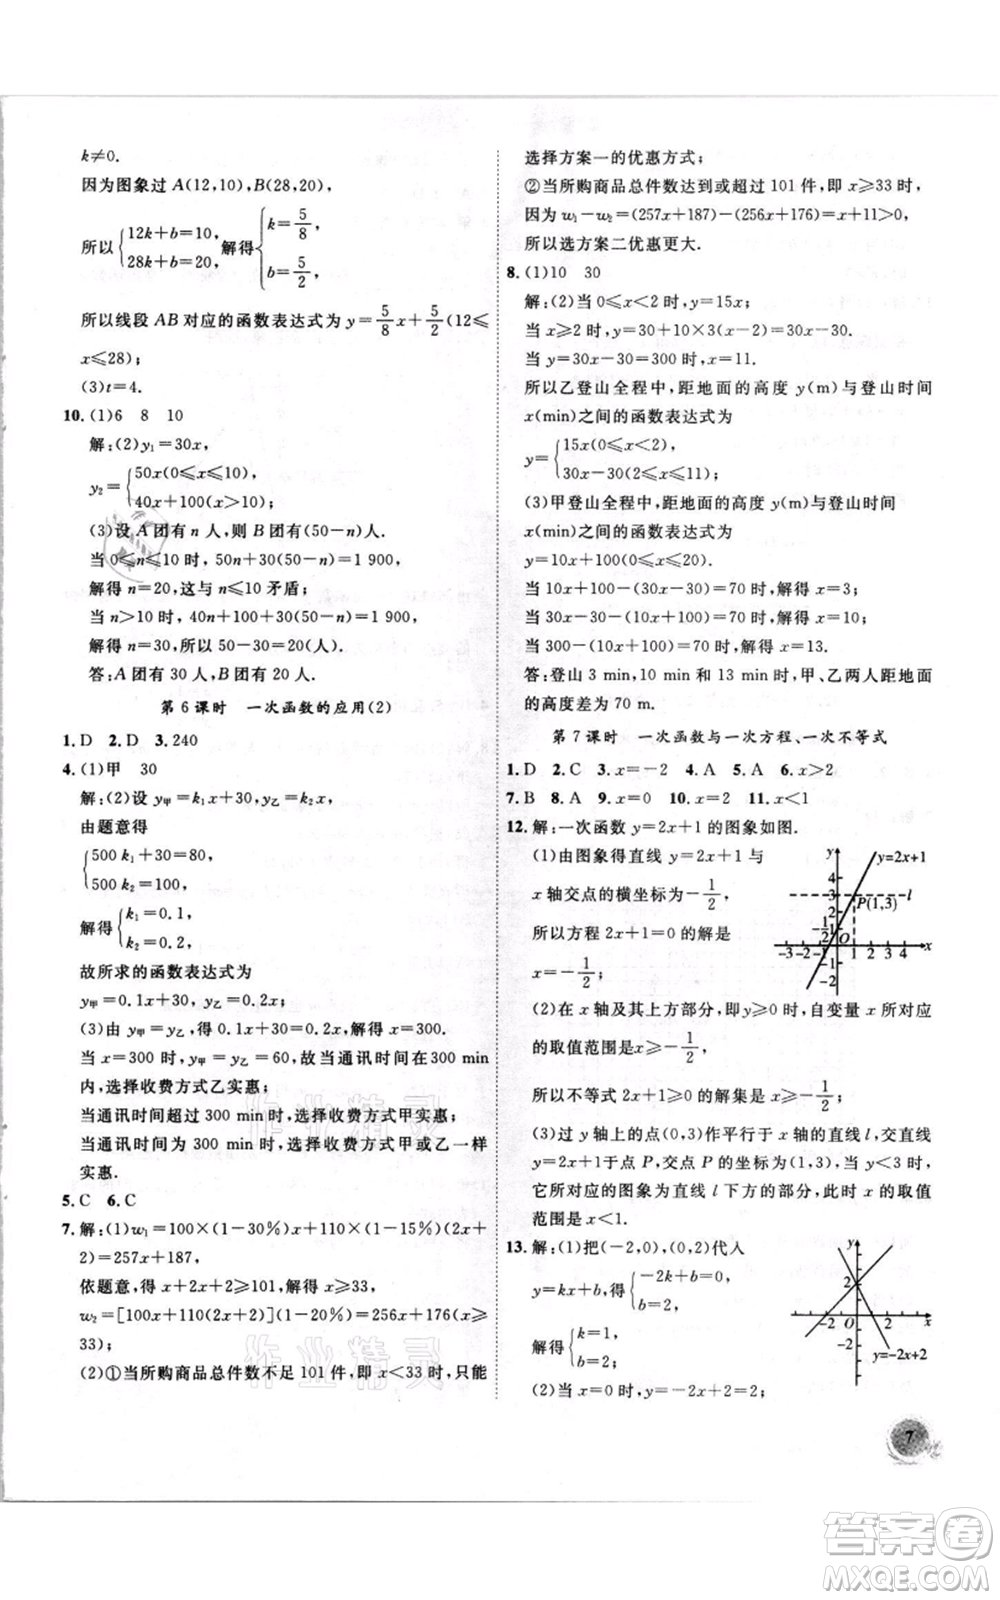 k≠0.
因为图象过 A(12,10),B(28,20),
所以{12k+b=10, 28k+b=20, 解得{k=5/8, b=5/2,
所以线段 AB 对应的函数表达式为 y=5/8x+5/2(12≤
x≤28);
(3)t=4.
10. (1)6 8 10
解:(2)y₁=30x,
y₂={50x(0≤x≤10), 40x+100(x>10);
(3)设 A 团有 n 人,则 B 团有(50-n)人.
当 0≤n≤10 时,50n+30(50-n)=1 900,
解得 n=20,这与 n≤10 矛盾;
当 n>10 时,40n+100+30(50-n)=1 900,
解得 n=30,所以 50-30=20(人).
答:A 团有 30 人,B 团有 20 人.
第 6 课时 一次函数的应用(2)
1. D 2. D 3. 240
4. (1)甲 30
解:(2)设 y甲=k₁x+30,y乙=k₂x,
由题意得
{500 k₁+30=80, 500 k₂=100,
解得{k₁=0.1, k₂=0.2,
故所求的函数表达式为
y甲=0.1x+30,y乙=0.2x;
(3)由 y甲=y乙,得 0.1x+30=0.2x,解得 x=300.
当 x=300 时,y甲=y乙=60,故当通讯时间在 300 min
内,选择收费方式乙实惠;
当通讯时间超过 300 min 时,选择收费方式甲实惠;
当通讯时间为 300 min 时,选择收费方式甲或乙一样
实惠.
5. C 6. C
7. 解:(1)w₁=100×(1-30%)x+110×(1-15%)(2x+
2)=257x+187,
依题意,得 x+2x+2≥101,解得 x≥33,
w₂=[100x+110(2x+2)](1-20%)=256x+176(x≥
33);
(2)①当所购商品总件数不足 101 件,即 x<33 时,只能
选择方案一的优惠方式;
②当所购商品总件数达到或超过 101 件,即 x≥33 时,
因为 w₁-w₂=(257x+187)-(256x+176)=x+11>0,
所以选方案二优惠更大.
8. (1)10 30
解:(2)当 0≤x<2 时,y=15x;
当 x≥2 时,y=30+10×3(x-2)=30x-30.
当 y=30x-30=300 时,x=11.
所以乙登山全程中,距地面的高度 y(m)与登山时间
x(min)之间的函数表达式为
y={15x(0≤x<2), 30x-30(2≤x≤11);
(3)甲登山全程中,距地面的高度 y(m)与登山时间
x(min)之间的函数表达式为
y=10x+100(0≤x≤20).
当 10x+100-(30x-30)=70 时,解得 x=3;
当 30x-30-(10x+100)=70 时,解得 x=10;
当 300-(10x+100)=70 时,解得 x=13.
答:登山 3 min,10 min 和 13 min 时,甲、乙两人距地面
的高度差为 70 m.
第 7 课时 一次函数与一次方程、一次不等式
1. D 2. C 3. x=-2 4. A 5. A 6. x>2
7. B 8. A 9. x=0 10. x=2 11. x<1
12. 解:一次函数 y=2x+1 的图象如图.
(1)由图象得直线 y=2x+1 与
x 轴交点的横坐标为-1/2,
所以方程 2x+1=0 的解是
x=-1/2;
y y=2x+1
4
l
P(1,3)
2
1
O x
-3 -2 -1 1 2 3 4
-1
-2
(2)在 x 轴及其上方部分,即 y≥0 时,自变量 x 所对应
的取值范围是 x≥-1/2,
所以不等式 2x+1≥0 的解集为 x≥-1/2;
(3)过 y 轴上的点(0,3)作平行于 x 轴的直线 l,交直线
y=2x+1 于点 P,交点 P 的坐标为(1,3),当 y<3 时,
它所对应的图象为直线 l 下方的部分,此时 x 的取值
范围是 x<1.
13. 解:(1)把(-2,0),(0,2)代入
y=kx+b,得{-2k+b=0, b=2,
解得{k=1, b=2;
(2)当 x=0 时,y=-2x+2=2;
y
2
-2 O 2 x
-2
y=-2x+2
7
作业精灵
作业精灵
答案卷
MXQE.COM